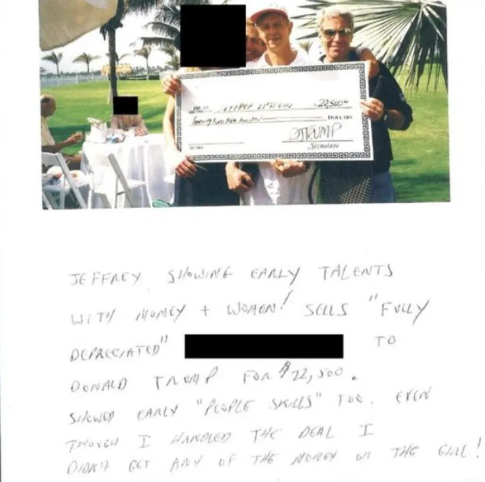 JEFFREY EPSTEIN 22,500
DOLLARS
DJTRUMP
JEFFREY SHOWING EARLY TALENTS
WITH MONEY + WOMEN! SELLS "FULLY
DEPRECIATED" TO
DONALD TRUMP FOR $22,500.
SHOWED EARLY "PEOPLE SKILLS" TOO. EVEN
THOUGH I HANDLED THE DEAL I
DIDN'T GET ANY OF THE MONEY OR THE GIRL!